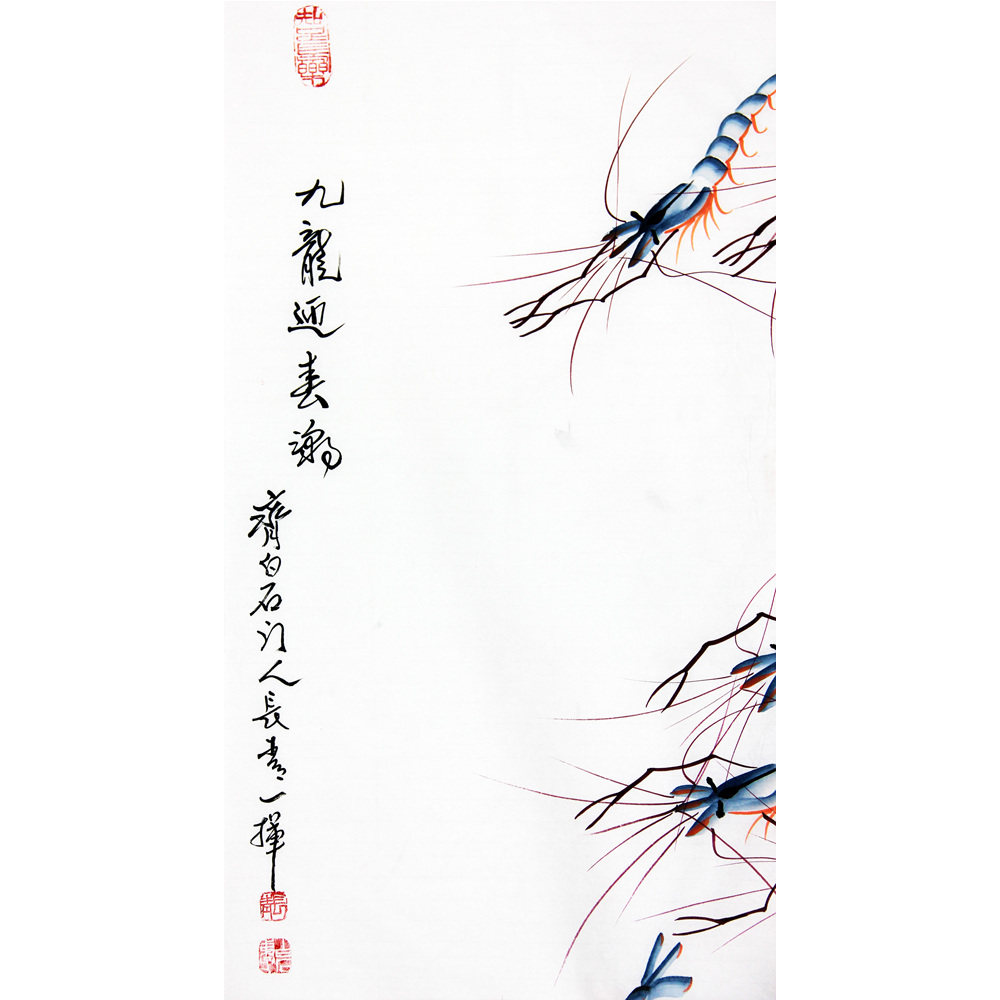 九龍迎春潮
齊白石门人長青一揮